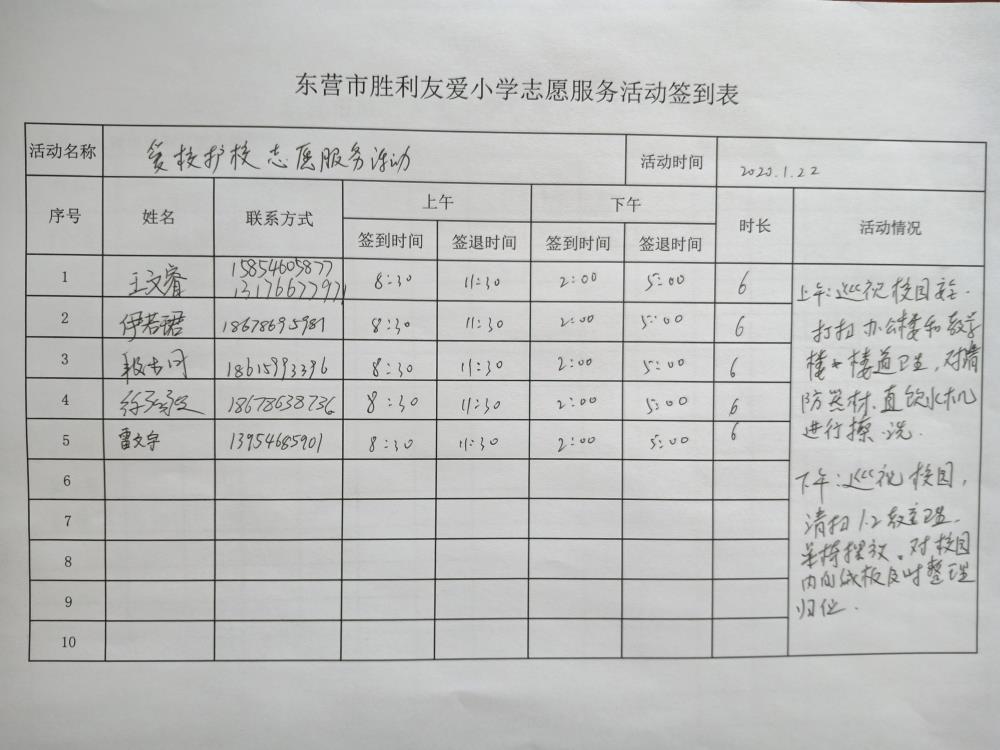 东营市胜利友爱小学志愿服务活动签到表
活动名称 爱校护校志愿服务活动 活动时间 2020.1.22
序号 姓名 联系方式 上午 下午 时长 活动情况
签到时间 签退时间 签到时间 签退时间
1 王文睿 15854605877 13176677971 8:30 11:30 2:00 5:00 6
2 伊若珺 18678695981 8:30 11:30 2:00 5:00 6
3 18615993396 8:30 11:30 2:00 5:00 6
4 18678638736 8:30 11:30 2:00 5:00 6
5 雷文宇 13954685901 8:30 11:30 2:00 5:00 6
6
7
8
9
10
上午:巡视校园
打扫办公楼和教学
楼楼道卫生,对消
防器材、直饮水机
进行擦洗.
下午:巡视校园,
清扫1.2教室卫生.
桌椅摆放。对校园
内向成板及时整理
归位.